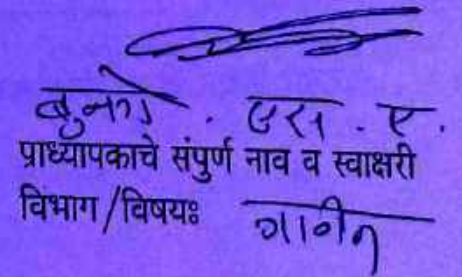 एस. ए.
प्राध्यापकाचे संपुर्ण नाव व स्वाक्षरी
विभाग/विषयः गणित